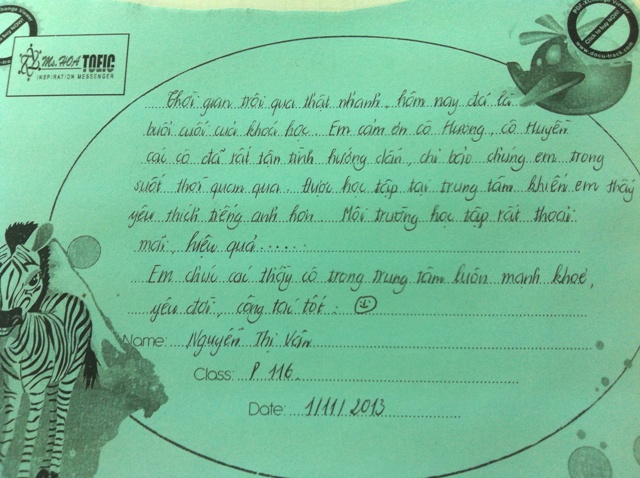 Ms. HOA TOEIC
INSPIRATION MESSENGER
PDF-XChange Viewer
Click to buy NOW!
www.docu-track.com
Thời gian trôi qua thật nhanh, hôm nay đã là
buổi cuối của khoá học. Em cảm ơn cô Hương, cô Huyền
các cô đã rất tận tình hướng dẫn, chỉ bảo chúng em trong
suốt thời quan qua. Được học tập tại trung tâm khiến em thấy
yêu thích tiếng anh hơn. Môi trường học tập rất thoải
mái, hiệu quả......
Em chúc các thầy cô trong trung tâm luôn mạnh khoẻ,
yêu đời, công tác tốt.
Name: Nguyễn Thị Vân
Class: P 116.
Date: 1/11/2013